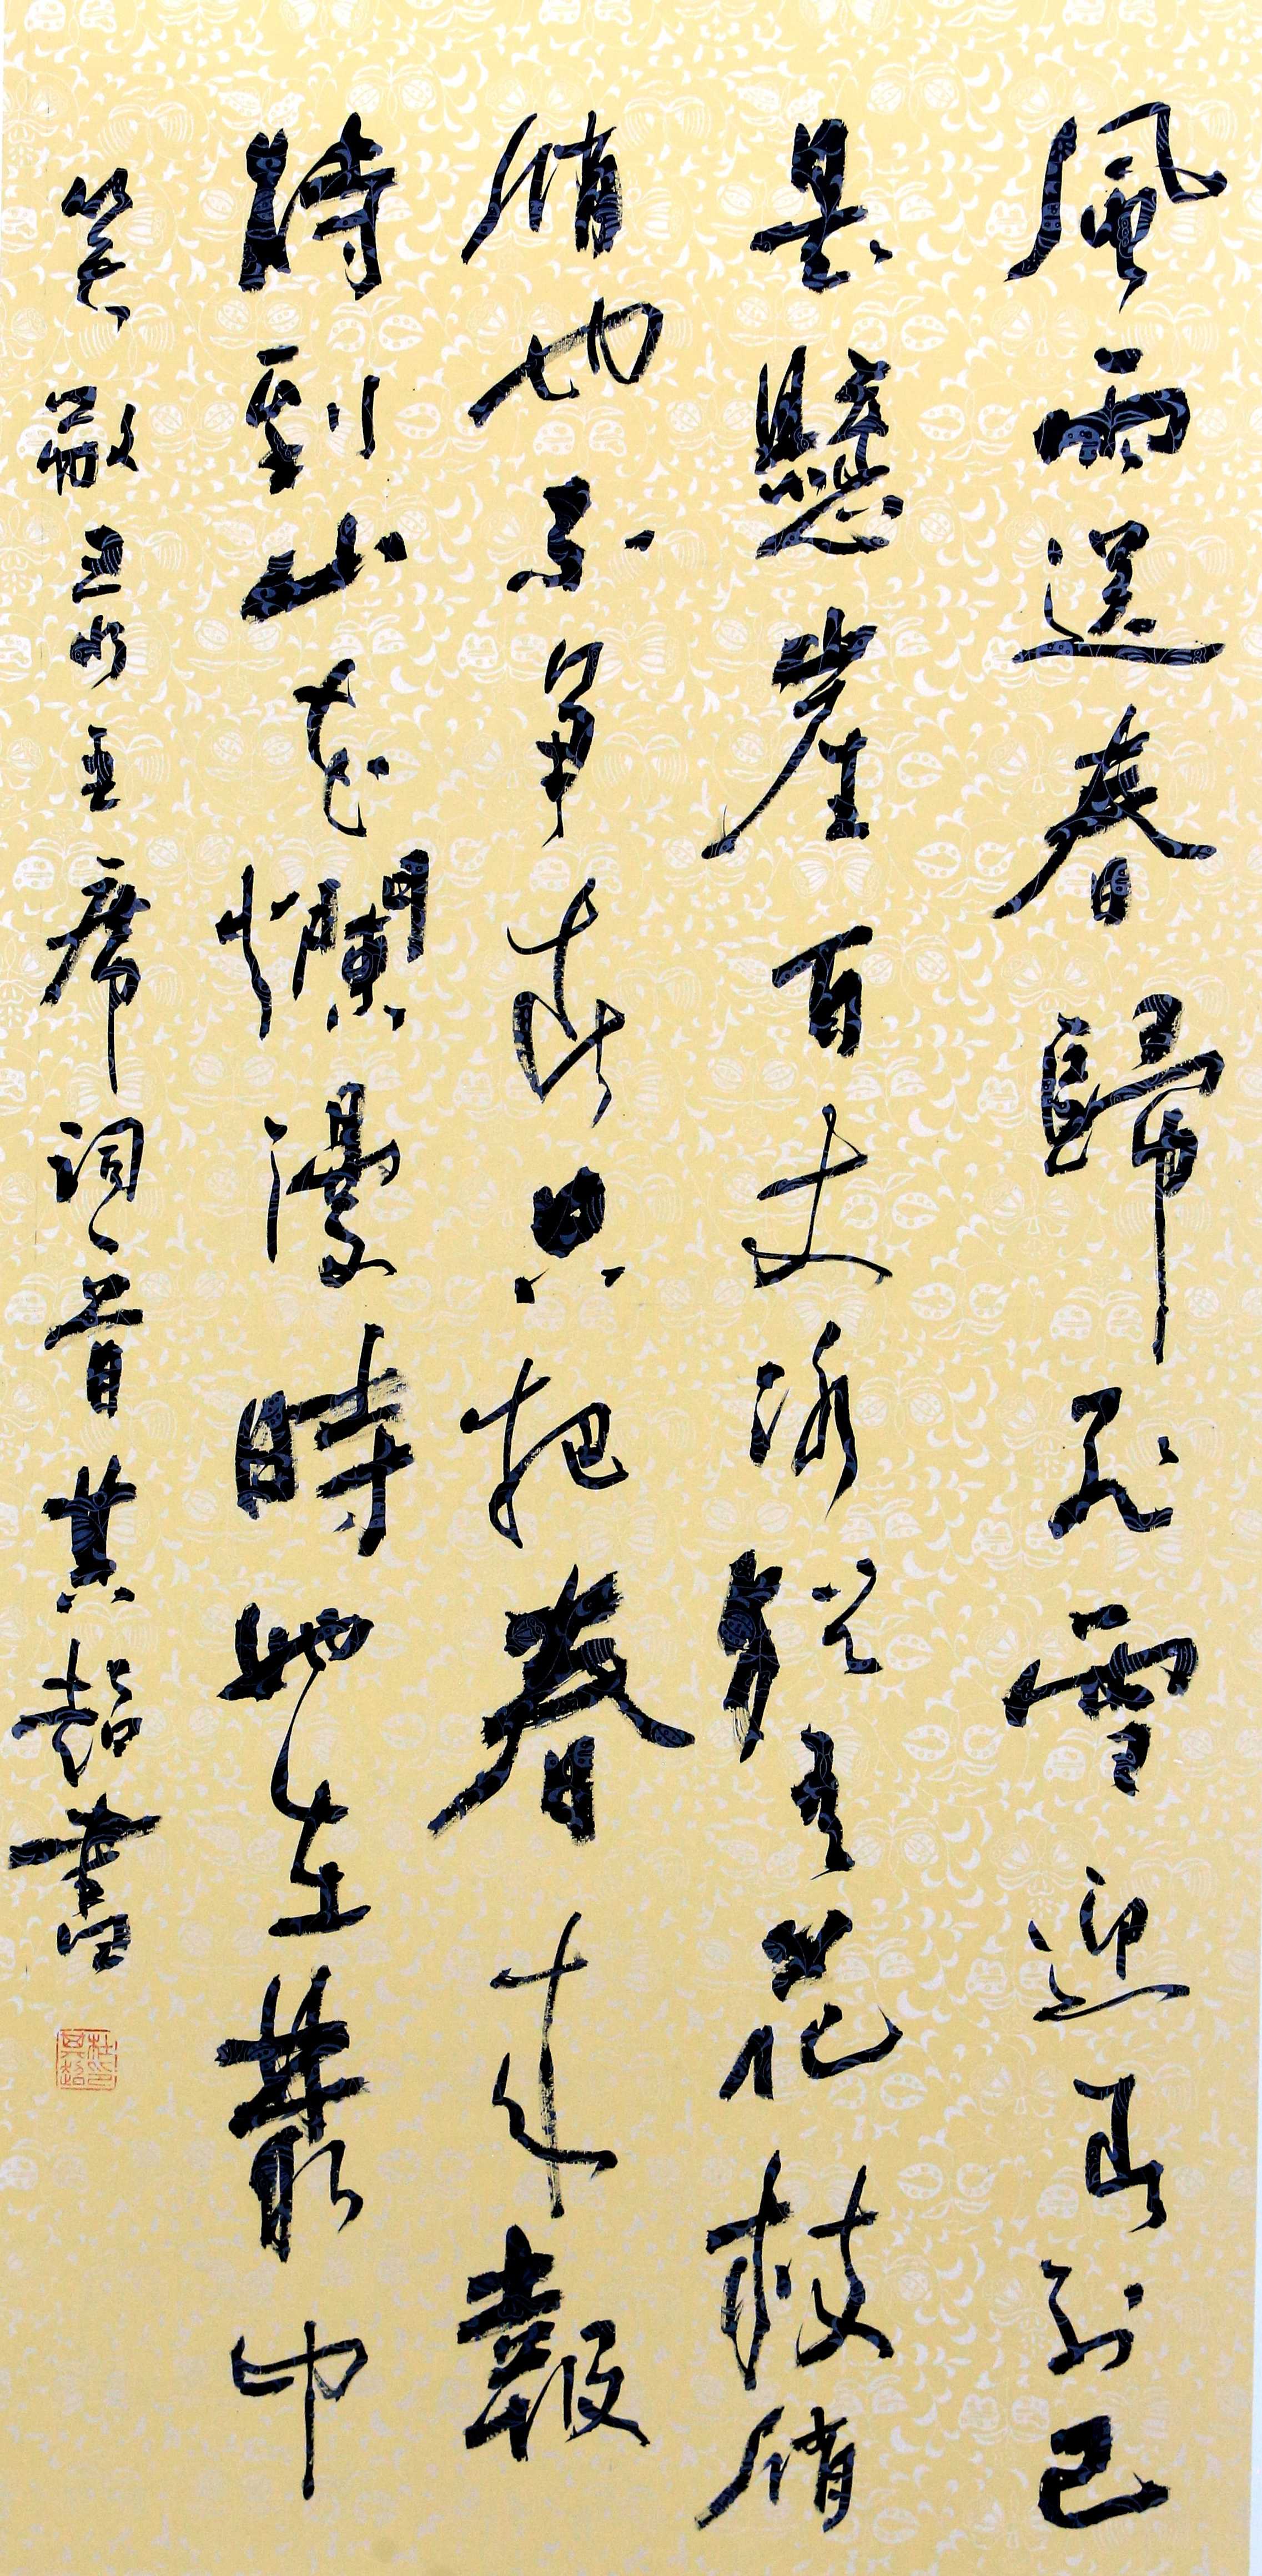 風雨送春歸飛雪迎春到已
是懸崖百丈冰猶有花枝俏
俏也不爭春只把春來報
待到山花爛漫時她在叢中
笑 敬录主席詞一首 其超書
杜印其超